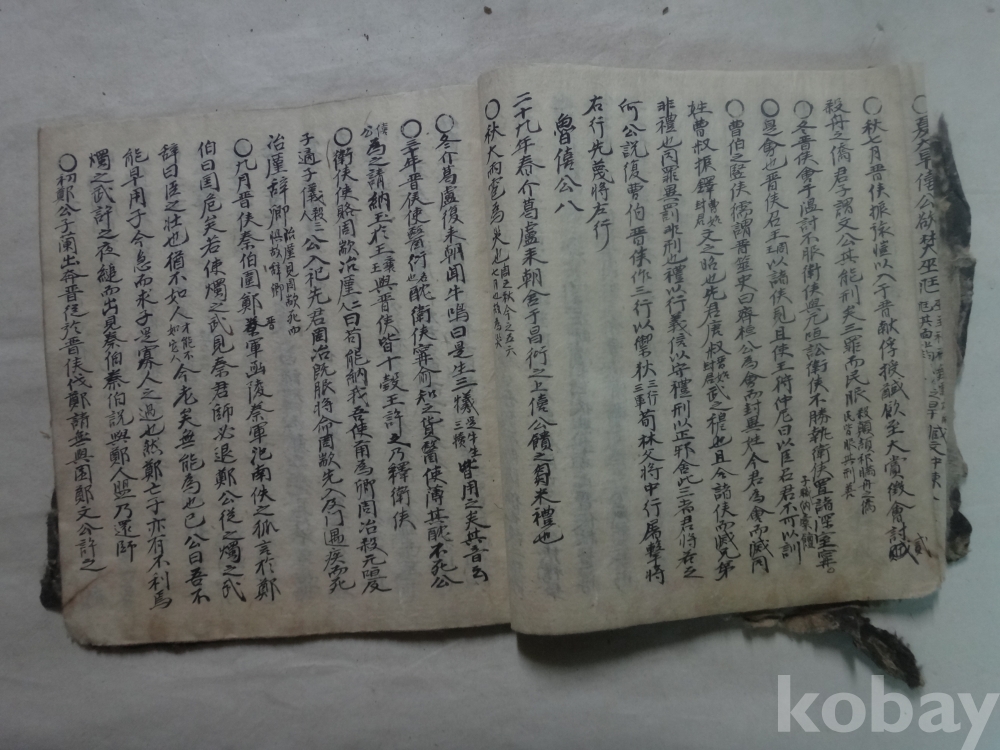 ○夏大旱僖公欲焚巫尫
○秋七月晋侯振旅愷以入于晋献俘授馘飲至大賞徵會討貳
殺舟之僑君子謂文公其能刑矣三罪而民服
○冬晋侯會于溫討不服衛侯與元咺訟衛侯不勝執衛侯置諸深室
○是會也晋侯召王以諸侯見且使王狩仲尼曰以臣召君不可以訓
○曹伯之竪侯獳謂晋筮史曰齊桓公為會而封異姓今君為會而滅同
姓曹叔振鐸文之昭也先君唐叔武之穆也且合諸侯而滅兄弟
非禮也同罪異罰非刑也禮以行義信以守禮刑以正邪舍此三者君將若之
何公說復曹伯晋侯作三行以禦狄荀林父將中行屠擊將
右行先蔑將左行
魯僖公八
二十九年春介葛盧来朝舍于昌衍之上僖公饋之芻米禮也
○秋大雨雹為災也
○冬介葛盧復来朝聞牛鳴曰是生三犧皆用之矣其音云
○三年晋侯使醫衍酖衛侯甯俞知之貨醫使薄其酖不死公
為之請納玉於王與晋侯皆十瑴王許之乃釋衛侯
○衛侯使賂周歂冶廑曰苟能納我吾使爾為卿周冶殺元咺及
子適子儀公入祀先君周冶既服將命周歂先入及門遇疾而死
冶廑辞卿
○九月晋侯秦伯圍鄭晋軍函陵秦軍氾南佚之狐言於鄭
伯曰国危矣若使燭之武見秦君師必退鄭公從之燭之武
辞曰臣之壯也猶不如人今老矣無能為也已公曰吾不
能早用子今急而求子是寡人之過也然鄭亡子亦有不利焉
燭之武許之夜縋而出見秦伯秦伯說與鄭人盟乃還師
○初鄭公子蘭出奔晋從於晋侯伐鄭請無與圍鄭文公許之
kobay